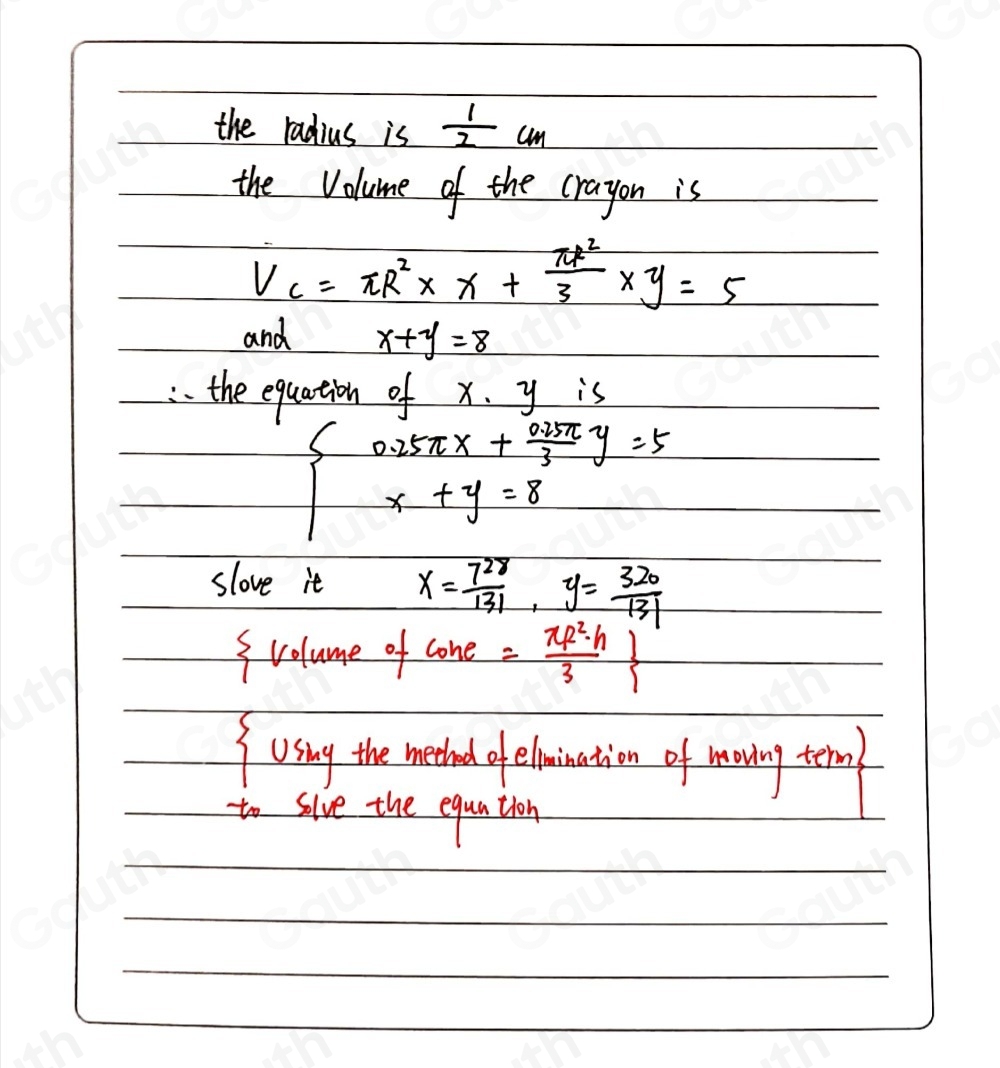 the radius is 1/2 cm
the Volume of the crayon is
Vc = πR² × x + πR²/3 × y = 5
and x+y = 8
∴ the equation of x. y is
{ 0.25πx + 0.25π/3 y = 5
x + y = 8
slove it x = 728/131, y = 320/131
{ Volume of cone = πR²·h/3 }
{ Using the method of elimination of moving term }
to solve the equation
Gauth